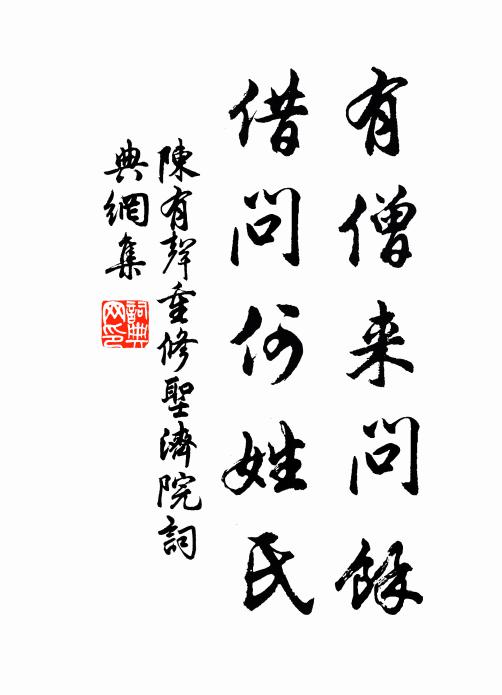 有僧来问餘
借問何姓氏
陳有聲重修聖濟院詞
典網集
詞典
网印